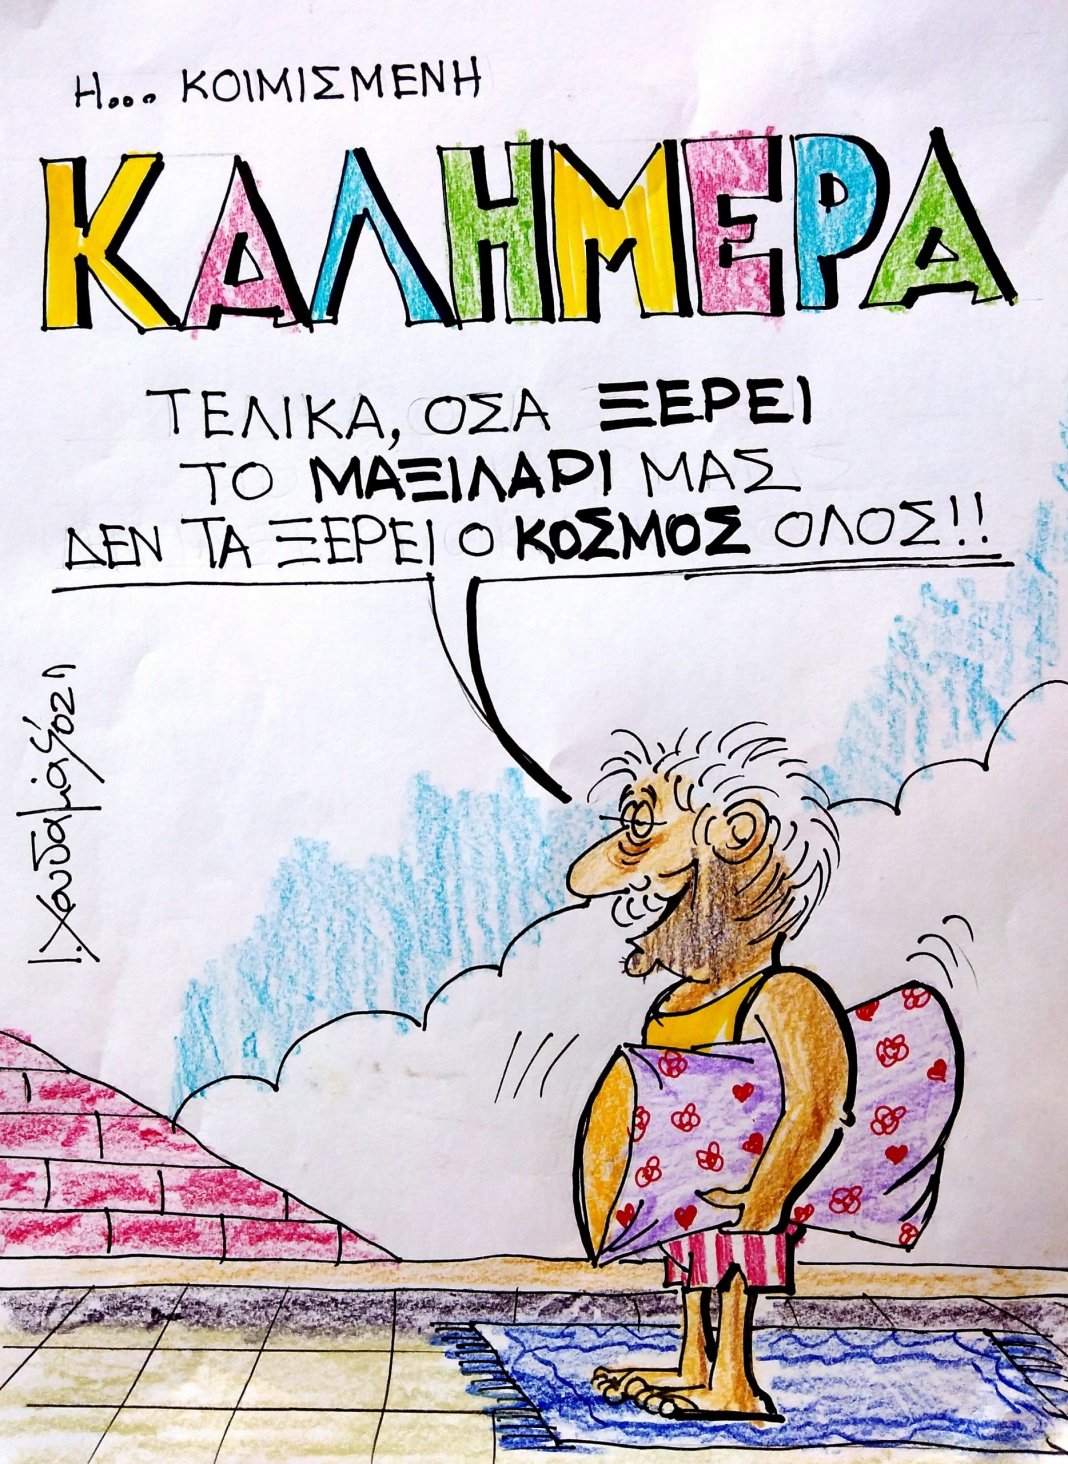 Η... ΚΟΙΜΙΣΜΕΝΗ
ΚΑΛΗΜΕΡΑ
ΤΕΛΙΚΑ, ΟΣΑ ΞΕΡΕΙ
ΤΟ ΜΑΞΙΛΑΡΙ ΜΑΣ
ΔΕΝ ΤΑ ΞΕΡΕΙ Ο ΚΟΣΜΟΣ ΟΛΟΣ!!